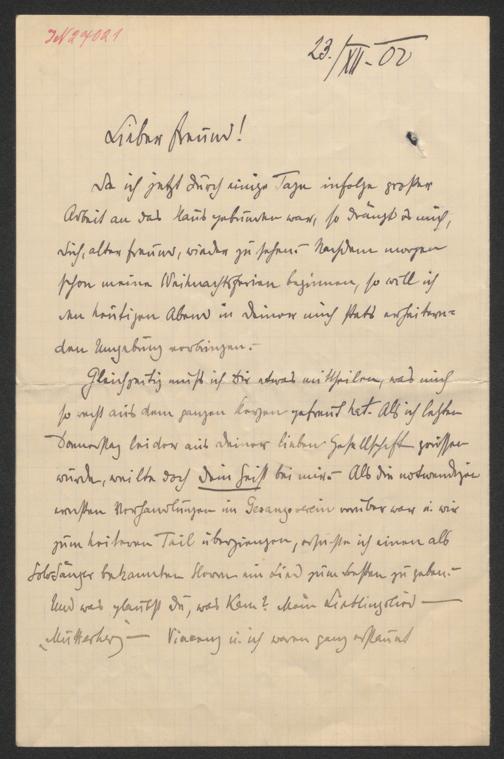 JN 27021
23./XII-02
Lieber Freund!
Da ich jetzt durch einige Tage infolge großer
Arbeit an das Haus gebunden war, so drängt es mich,
dich, alter Freund, wieder zu sehen.- Nachdem morgen
schon meine Weihnachtsferien beginnen, so will ich
den heutigen Abend in deiner mich stets erheitern=
den Umgebung verbringen.-
Gleichzeitig muß ich dir etwas mittheilen, was mich
so recht aus dem ganzen Herzen gefreut hat. Als ich letzten
Donnerstag leider aus deiner lieben Gesellschaft gerissen
wurde, weilte doch dein Geist bei mir.- Als die notwendigen
ernsten Verhandlungen im Gesangverein vorüber war u. wir
zum heiteren Teil übergiengen, ersuchte ich einen als
Solosänger bekannten Herrn ein Lied zum besten zu geben.-
Und was glaubst du, was kam? Mein Lieblingslied —
"Mutterherz" — Vincenz u. ich waren ganz erstaunt